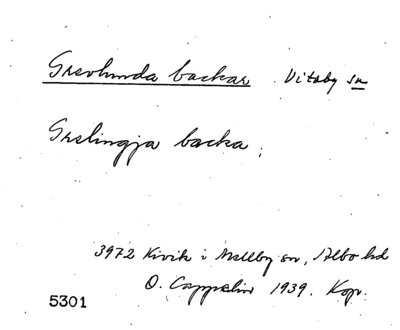 Grevlunda backar Vitaby sn
Grelingja backa;
3972 Kivik i Mellby sn, Albo hd
O. Cappelin 1939. Kop.
5301